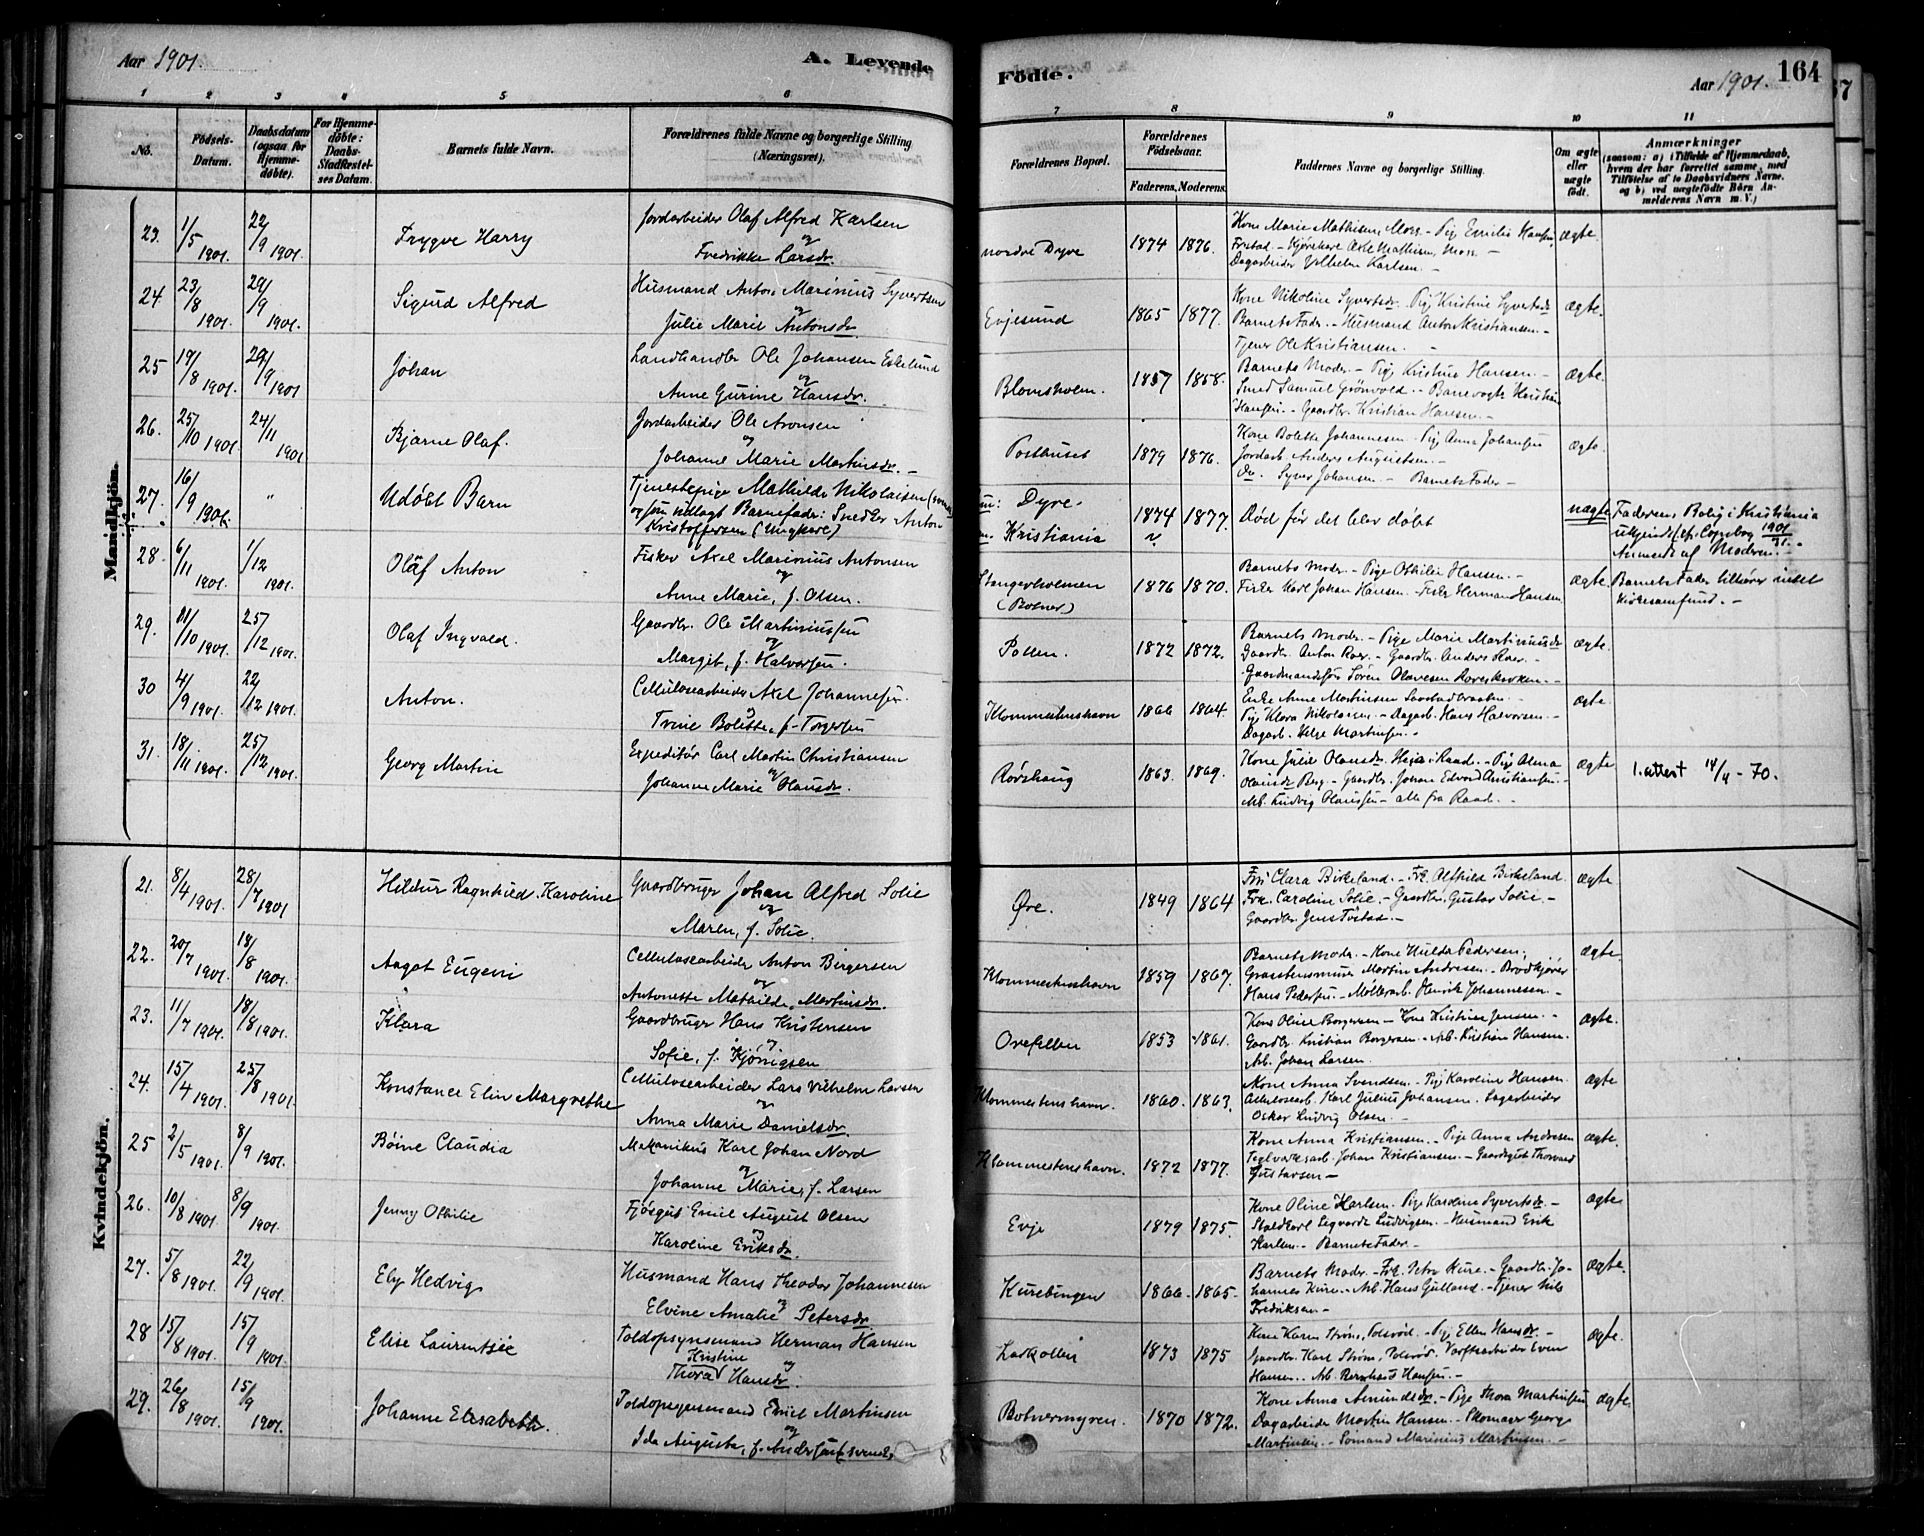 Aar 1901.
A. Levende
Födte.
Aar 1901.
164
1 2 3 4 5 6 7 8 9 10 11
No.
Födsels-Datum.
Daabsdatum (ogsaa for Hjemme-döbte).
For Hjemme-döbte: Daabs-Stadfæstel-ses Datum.
Barnets fulde Navn.
Forældrenes fulde Navne og borgerlige Stilling (Næringsvei).
Forældrenes Bopæl.
Forældrenes Födselsaar.
Faderens. Moderens.
Faddernes Navne og borgerlige Stilling.
Om ægte eller uægte födt.
Anmærkninger
(saasom: a) i Tilfælde af Hjemmedaab, hvem der har forrettet samme, med Tilföielse af to Daabsvidners Navne, og b) ved uægtefödte Börn Anmelderens Navn m. V.)
Mandkjön.
23. 1/5 1901. 22/9 1901. Trygve Harry
Jordarbeider Olaf Alfred Karlsen
og
Fredrikke Larsdr.
nordre Dyre 1874 1876.
Kone Marie Mathisen, Moss - Pige Emilie Hansen,
- Kjörekarl Axel Mathisen, Moss
Dagarbeider Vilhelm Karlsen. -
ægte.
24 23/8 1901. 29/9 1901. Sigurd Alfred
Husmand Anton Marinius Syvertsen
og
Julie Marie Antonsdr.
Evjesund 1865 1877.
Kone Nikoline Syvertsdr. Pige Kristine Syvertsdr
Barnets Fader. - Husmand Anton Kristiansen. -
Tjener Ole Kristiansen. -
ægte.
25 19/8 1901. 29/9 1901 Johan
Landhandler Ole Johansen Eskelund
og
Anne Gurine Hansdr.
Blomsholm. 1857 1858.
Barnets Moder. - Pige Kristine Hansen. -
Smed Samuel Grönvold. -
Hansen. - Gaardbr. Kristian Hansen. -
ægte.
26. 25/10 1901. 24/11 1901 Bjarne Olaf.
Jordarbeider Ole Aronsen
og
Johanne Marie Martinsdr. -
Posthuset 1879 1876.
Kone Bolette Johannesen. Pige Anna Johansen
Jordarb. Anders Augustsen. -
Do. Syver Johansen - Barnets Fader -
ægte.
27. 16/9 1901. " Udöbt Barn
Tjenestepige Mathilde Nikolaisen
og som udlagt Barnefader: Snedker Anton
Kristoffersen (Ungkarl)
Dyre.
Kristiania
1874 1877.
Död för det blev döbt
uægte
Faderens Bolig i Kristiania
ukjendt
Anmeldt af Moderen. -
28. 6/11 1901. 1/12 1901. Olaf Anton
Fisker Axel Marinius Antonsen
og
Anne Marie, f. Olsen.
Stangerholmen
1876 1870.
Barnets Moder. - Pige Othilie Hansen. -
Fisker Karl Johan Hansen. - Fisker Herman Hansen
ægte.
Barnets Fader tilhører intet
Kirkesamfund. -
29. 21/10 1901. 25/12 1901. Olaf Ingvald.
Gaardbr. Ole Martiniussen
og
Margit, f. Halvorsen.
Pollen. 1872 1872.
Barnets Moder. - Pige Marie Martiniusdr
Gaardbr. Anton Roer. - Gaardbr. Anders Roer. -
Gaardmandssön Sören Olavesen
ægte.
30 4/9 1901. 22/12 1901. Anton.
Cellulosearbeider Axel Johannesen
og
Trine Bolette, f. Torgersen
Klommestenshavn 1866 1864.
Enke Anne Martinsen
Pige Klara Nikolaisen. - Dagarb. Hans Halvorsen. -
Dagarb. Helge Martinsen. -
ægte.
31. 18/11 1901. 25/12 1901. Georg Martin
Expeditör Carl Martin Christiansen
og
Johanne Marie Olausdr.
Rörshaug 1863. 1869.
Kone Julie Olausdr. i Raade. - Pige Alma
Olausdr Berg - Gaardbr. Johan Edvard Christiansen. -
Arb. Ludvig Olaussen - alle fra Raade. -
ægte
1. attest 14/4 - 70.
Kvindekjön.
21. 8/4 1901. 28/7 1901 Hildur Ragnhild Karoline
Gaardbruger Johan Alfred Solie
og
Maren, f. Solie.
Øre. 1849 1864
Fru Clara Birkeland. - Frk. Althild Birkeland
Frk. Caroline Solie. - Gaardbr. Gustav Solie. -
Gaardbr. Jens Tvetad. -
ægte
22. 20/7 1901. 18/8 1901. Aagot Eugeni
Cellulosearbeider Anton Birgersen
og
Antonette Mathilde Martinsdr.
Klommestenshavn 1859 1867.
Barnets Moder. - Kone Hulda Pedersen,
Martin Andresen. - Brödkjörer
Hans Pedersen. - Möllerarb. Henrik Johannesen. -
ægte.
23. 11/7 1901. 18/8 1901. Klara
Gaardbruger Hans Kristensen
og
Sofie, f. Kjönigsen
Orefellen 1853 1861.
Kone Oline Borgersen - Kone Kristine Jensen. -
Gaardbr. Kristian Borgersen - Arb. Kristian Hansen.
Arb. Johan Larsen.
ægte.
24. 15/4 1901. 25/8 1901. Konstance Elin Margrethe
Cellulosearbeider Lars Vilhelm Larsen
og
Anna Marie Danielsdr.
Klommestenshavn. 1860. 1863.
Kone Anna Svendsen. - Pige Karoline Hansen.
Cellulosearb. Karl Julius Johansen. Sagarbeider
Oskar Ludvig Olsen. -
ægte
25 2/5 1901. 8/9 1901. Böine Claudia
Mekanikus Karl Johan Nord
og
Johanne Marie, f. Larsen
Klommestenshavn. 1872 1877.
Kone Anna Kristiansen. - Pige Anna Andresen
Teglverksarb. Johan Kristiansen. - Gaardgut Thorvald
Gustavsen -
ægte.
26. 10/8 1901. 8/9 1901. Jenny Othilie
Fjösgut Emil August Olsen
og
Karoline Eriksdr.
Evje 1879 1875.
Kone Oline Karlsen. Pige Karoline Syvertsdr. -
Staldkarl Sigvardt Ludvigsen. - Husmand Erik
Karlsen. - Barnets Fader. -
ægte
27. 5/8 1901. 22/9 1901. Ely Hedvig
Husmand Hans Theodor Johannesen
og
Elvine Amalie Petersdr.
Kurebingen 1866. 1865.
Barnets Moder. - Frk. Petra Kure. - Gaardbr. Jo-
hannes Kure. - Arb. Hans Gulland. - Tjener Nils
Fredriksen -
ægte.
28 15/8 1901. 15/9 1901 Elise Laurentze
Toldopsynsmand Herman Hansen
og
Thora Kristine Hansdr.
Larkollen 1873 1875
Kone Karen Ström, . Pige Ellen Hansdr. -
Gaardbr. Karl Ström, . Værftsarbeider Even
Hansen. Arb. Bernhard Hansen. -
ægte.
29. 26/8 1901. 15/9 1901. Johanne Elisabeth.
Toldopsynsmand Emil Martinsen
og
Ida Augusta, f. Andersen (svensk)
Botnermyren. 1870 1872.
Kone Anna Amundsdr. - Pige Thora Martinsen
Dagarbeider Martin Hansen. - Skomager Georg
Martinsen. - Sömand Marinius Martinsen. -
ægte.